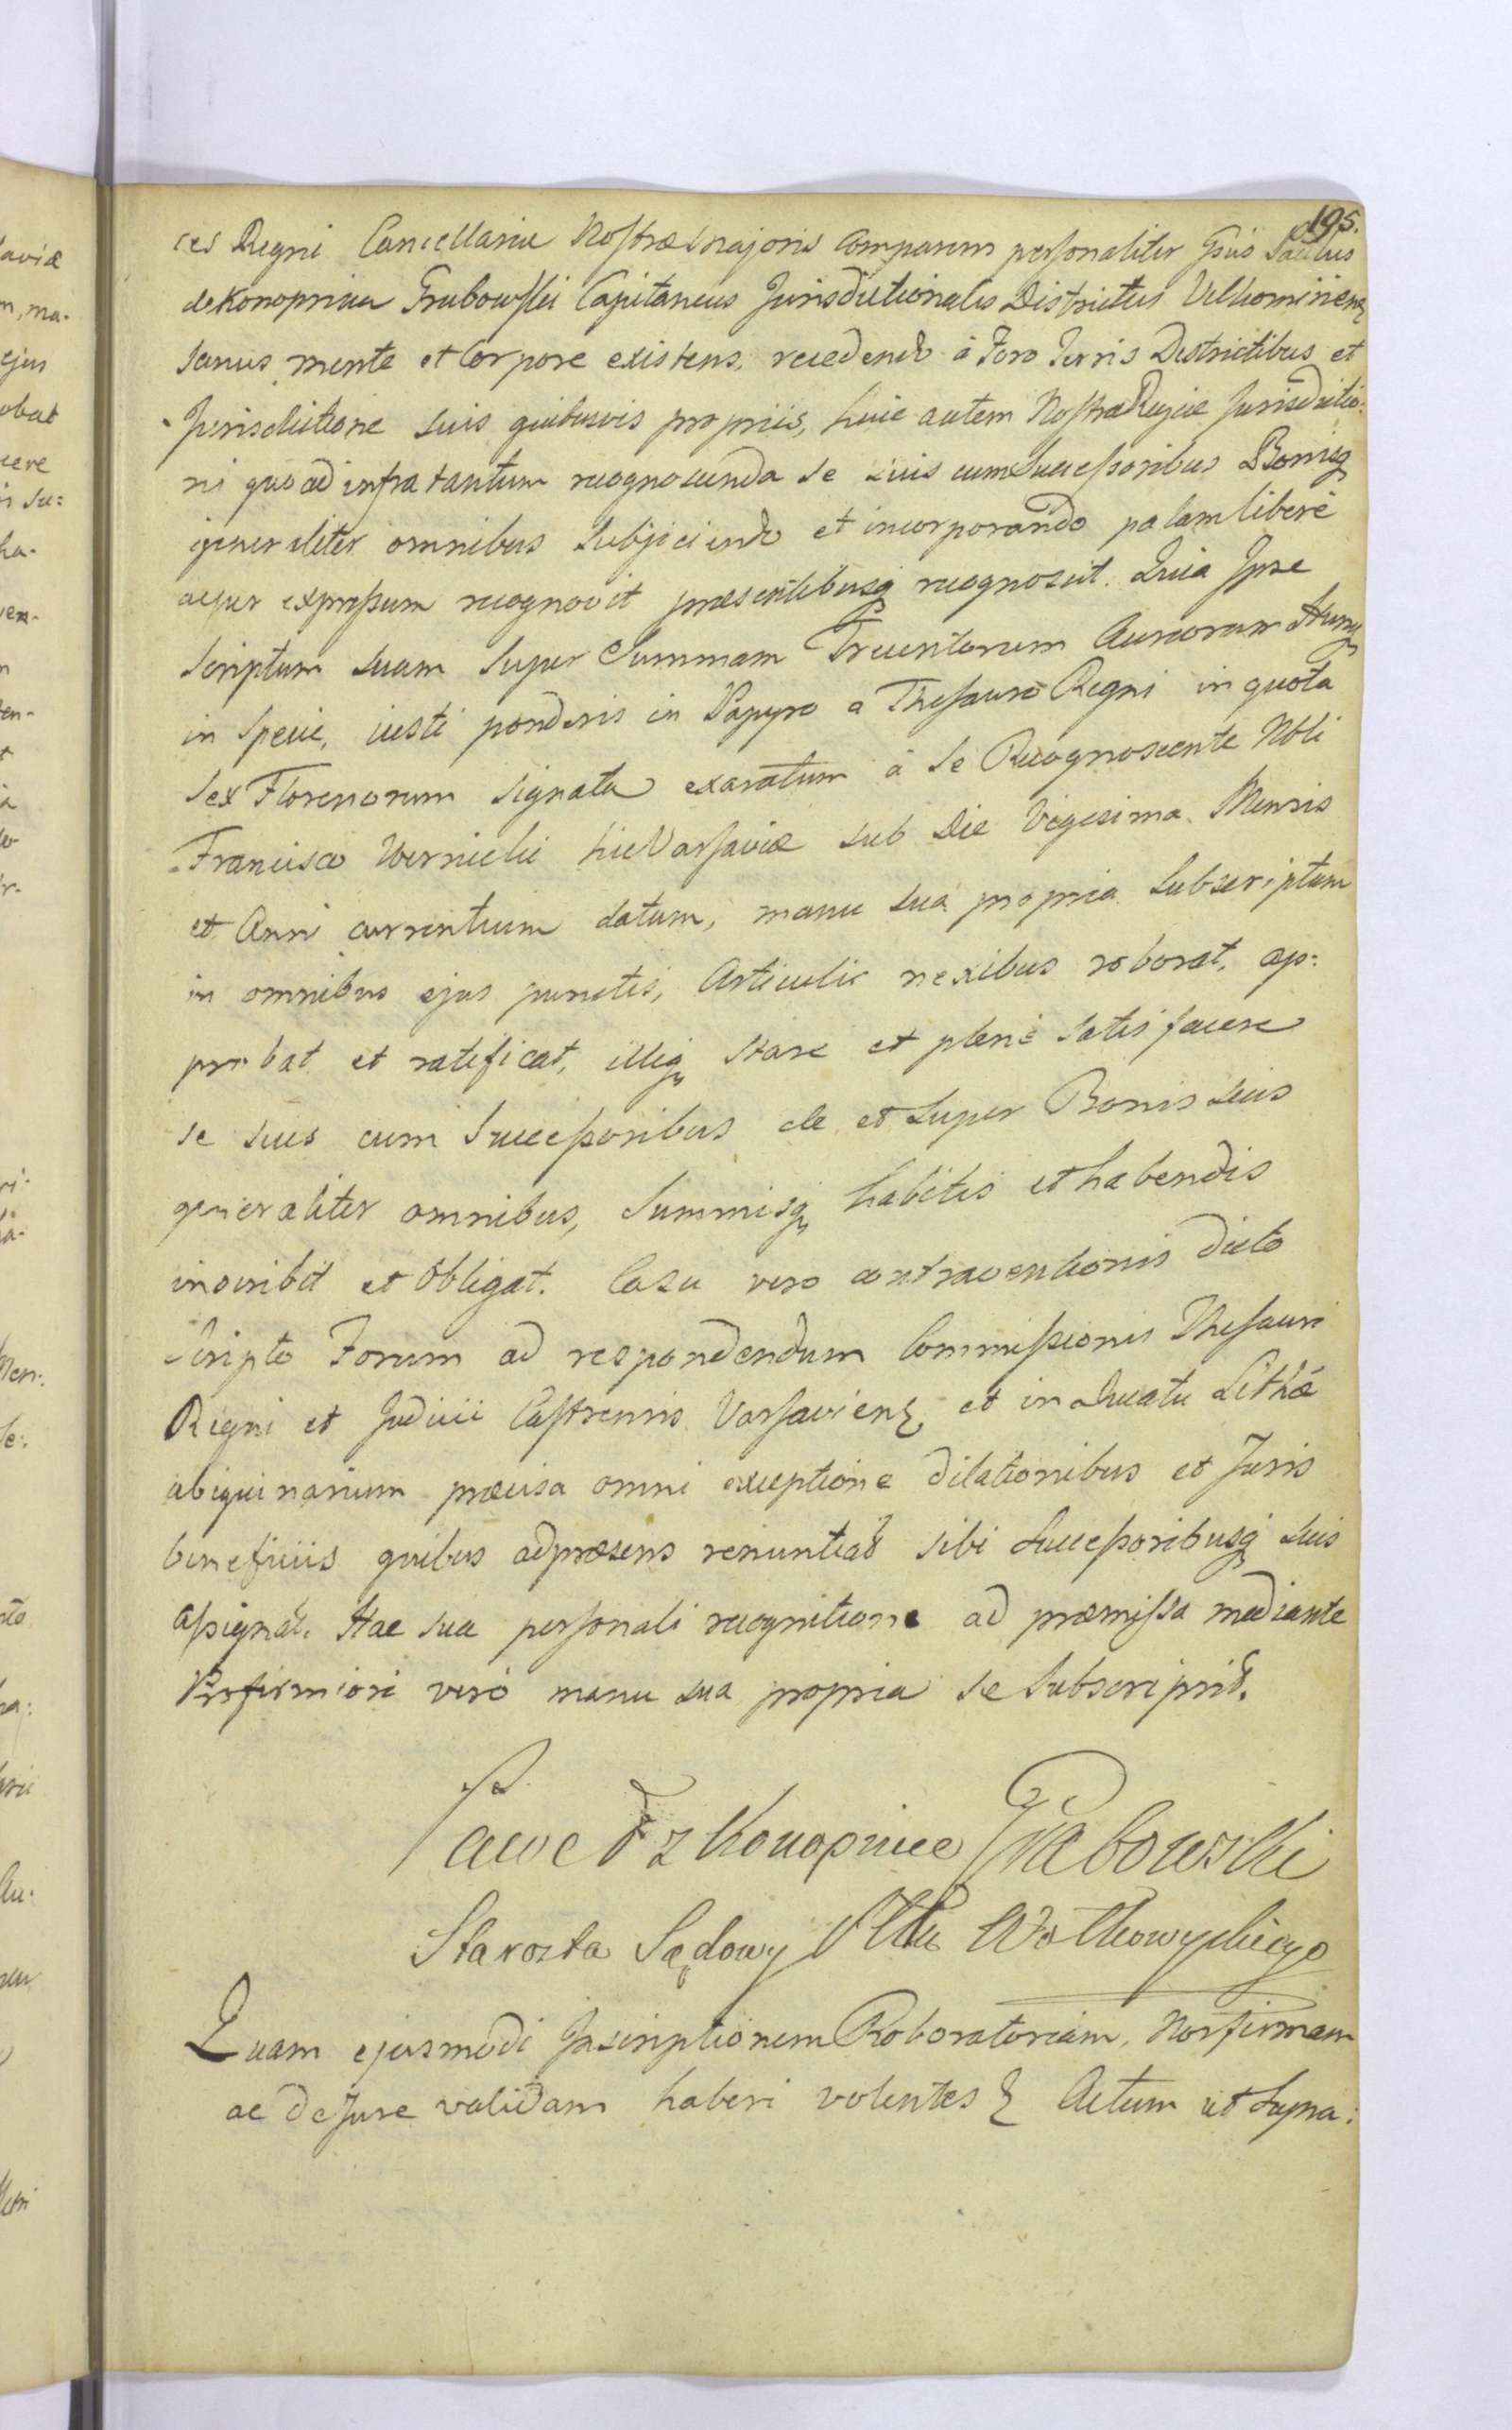 195.
ces Regni Cancellariæ Nostræ Majoris Comparens personaliter Gsus Paulus
de Konopnica Grabowski Capitaneus Jurisdictionalis Districtus Vilkomiriens
sanus mente et Corpore existens, recedendo à Foro Terris Districtibus et
Jurisdictione suis quibusvis propriis, huic autem Nostræ Regiæ Jurisdictio:
ni quo ad infra tantum recognoscenda se suis cum Successoribus Bonisq
generaliter omnibus Subjiciendo et incorporando palam liberè
acper expressum recognovit præsentibusq recognoscit. Quia Ipse
Scriptum suum super Summam Trecentorum Aureorum Hung
in Specie, iusti ponderis in Papyro a Thesauro Regni in quota
sex Florenorum signata exaratum à se Recognoscente Nbli
Francisco Wernicki hic Varsaviæ sub Die Vigesima Mensis
et Anni currentium datum, manu sua propria Subscriptum
in omnibus ejus punctis, Articulis nexibus roborat, ap:
probat et ratificat, illiq stare et plenè satisfacere
se suis cum Successoribus de et super Bonis suis
generaliter omnibus, Summisq habitis et habendis
inscribit et Obligat. Casu vero contraventionis dicto
Scripto Forum ad respondendum Commissionis Thesauri
Regni et Judicii Castrensis Varsaviens et in Ducatu Lithæ
ubiquinarium præcisa omni exceptione dilationibus et Juris
beneficiis quibus adpræsens renuntiat sibi Successoribusq suis
assignat. Hac sua personali recognitione ad præmissa mediante
Profirmiori verò manu sua propria se Subscripsit.
Paweł z Konopnice Grabowski
Starosta Sądowy Pttu Wołkowyskiego
Quam ejusmodi Inscriptionem Roboratoriam, Nos firmam
ac de Jure validam haberi volentes Actum ut Supra: